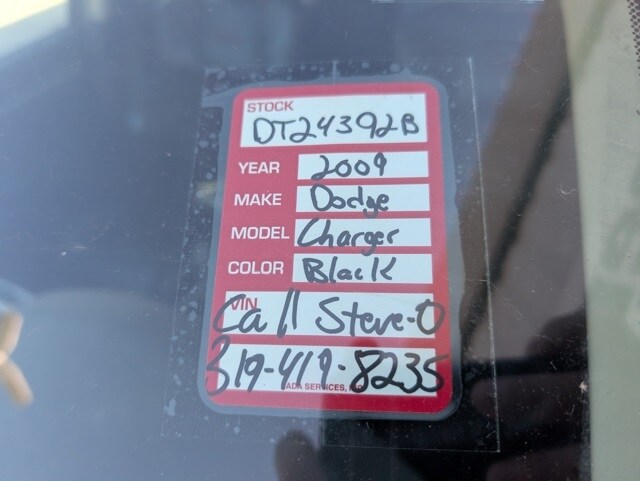 STOCK
DT24392B
YEAR 2009
MAKE Dodge
MODEL Charger
COLOR Black
VIN
Call Steve-O
319-419-8235